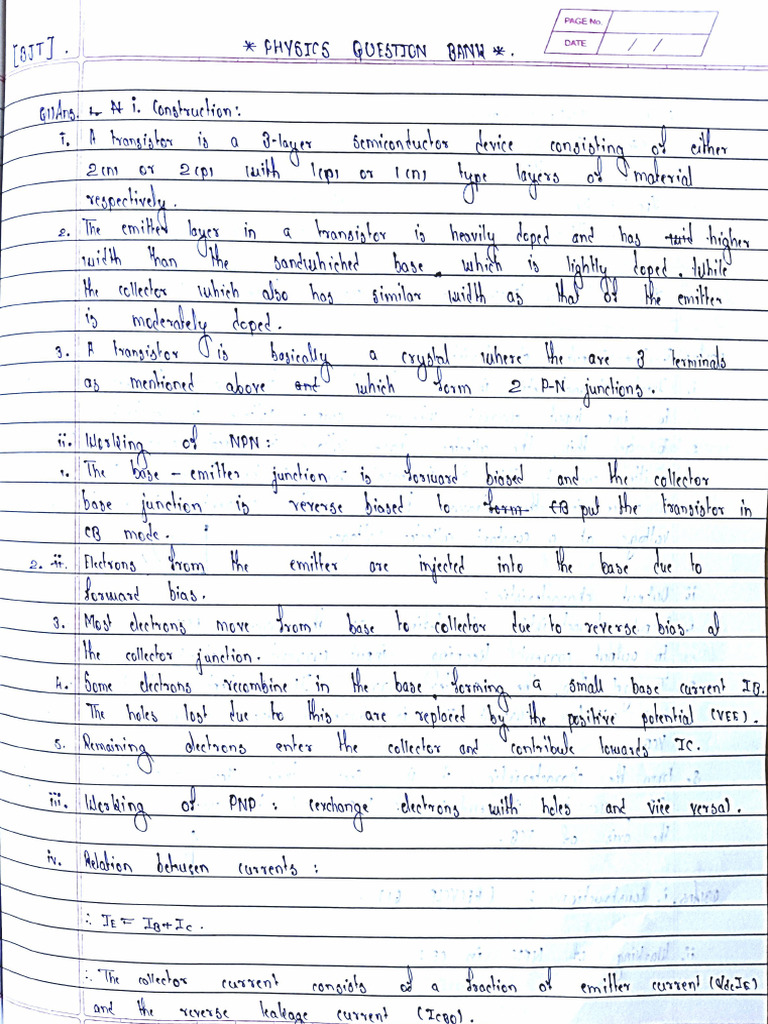 PAGE No.
DATE / /
[BJT].
* PHYSICS QUESTION BANK *.
Q1)Ans. i. Construction:
1. A transistor is a 3-layer semiconductor device consisting of either
2(n) or 2(p) with 1(p) or 1(n) type layers of material
respectively.
2. The emitter layer in a transistor is heavily doped and has higher
width than the sandwhiched base which is lightly doped. While
the collector which also has similar width as that of the emitter
is moderately doped.
3. A transistor is basically a crystal where the are 3 terminals
as mentioned above and which form 2 P-N junctions.
ii. Working of NPN:
1. The base - emitter junction is forward biased and the collector
base junction is reverse biased to form CB put the transistor in
CB mode.
2. ii. Electrons from the emitter are injected into the base due to
forward bias.
3. Most electrons move from base to collector due to reverse bias at
the collector junction.
4. Some electrons recombine in the base forming a small base current IB.
The holes lost due to this are replaced by the positive potential (VEE).
5. Remaining electrons enter the collector and contribute towards IC.
iii. Working of PNP: (exchange electrons with holes and vice versa).
iv. Relation between currents:
∴ IE = IB+IC.
∴ The collector current consists of a fraction of emitter current (αdcIE)
and the reverse leakage current (ICBO).